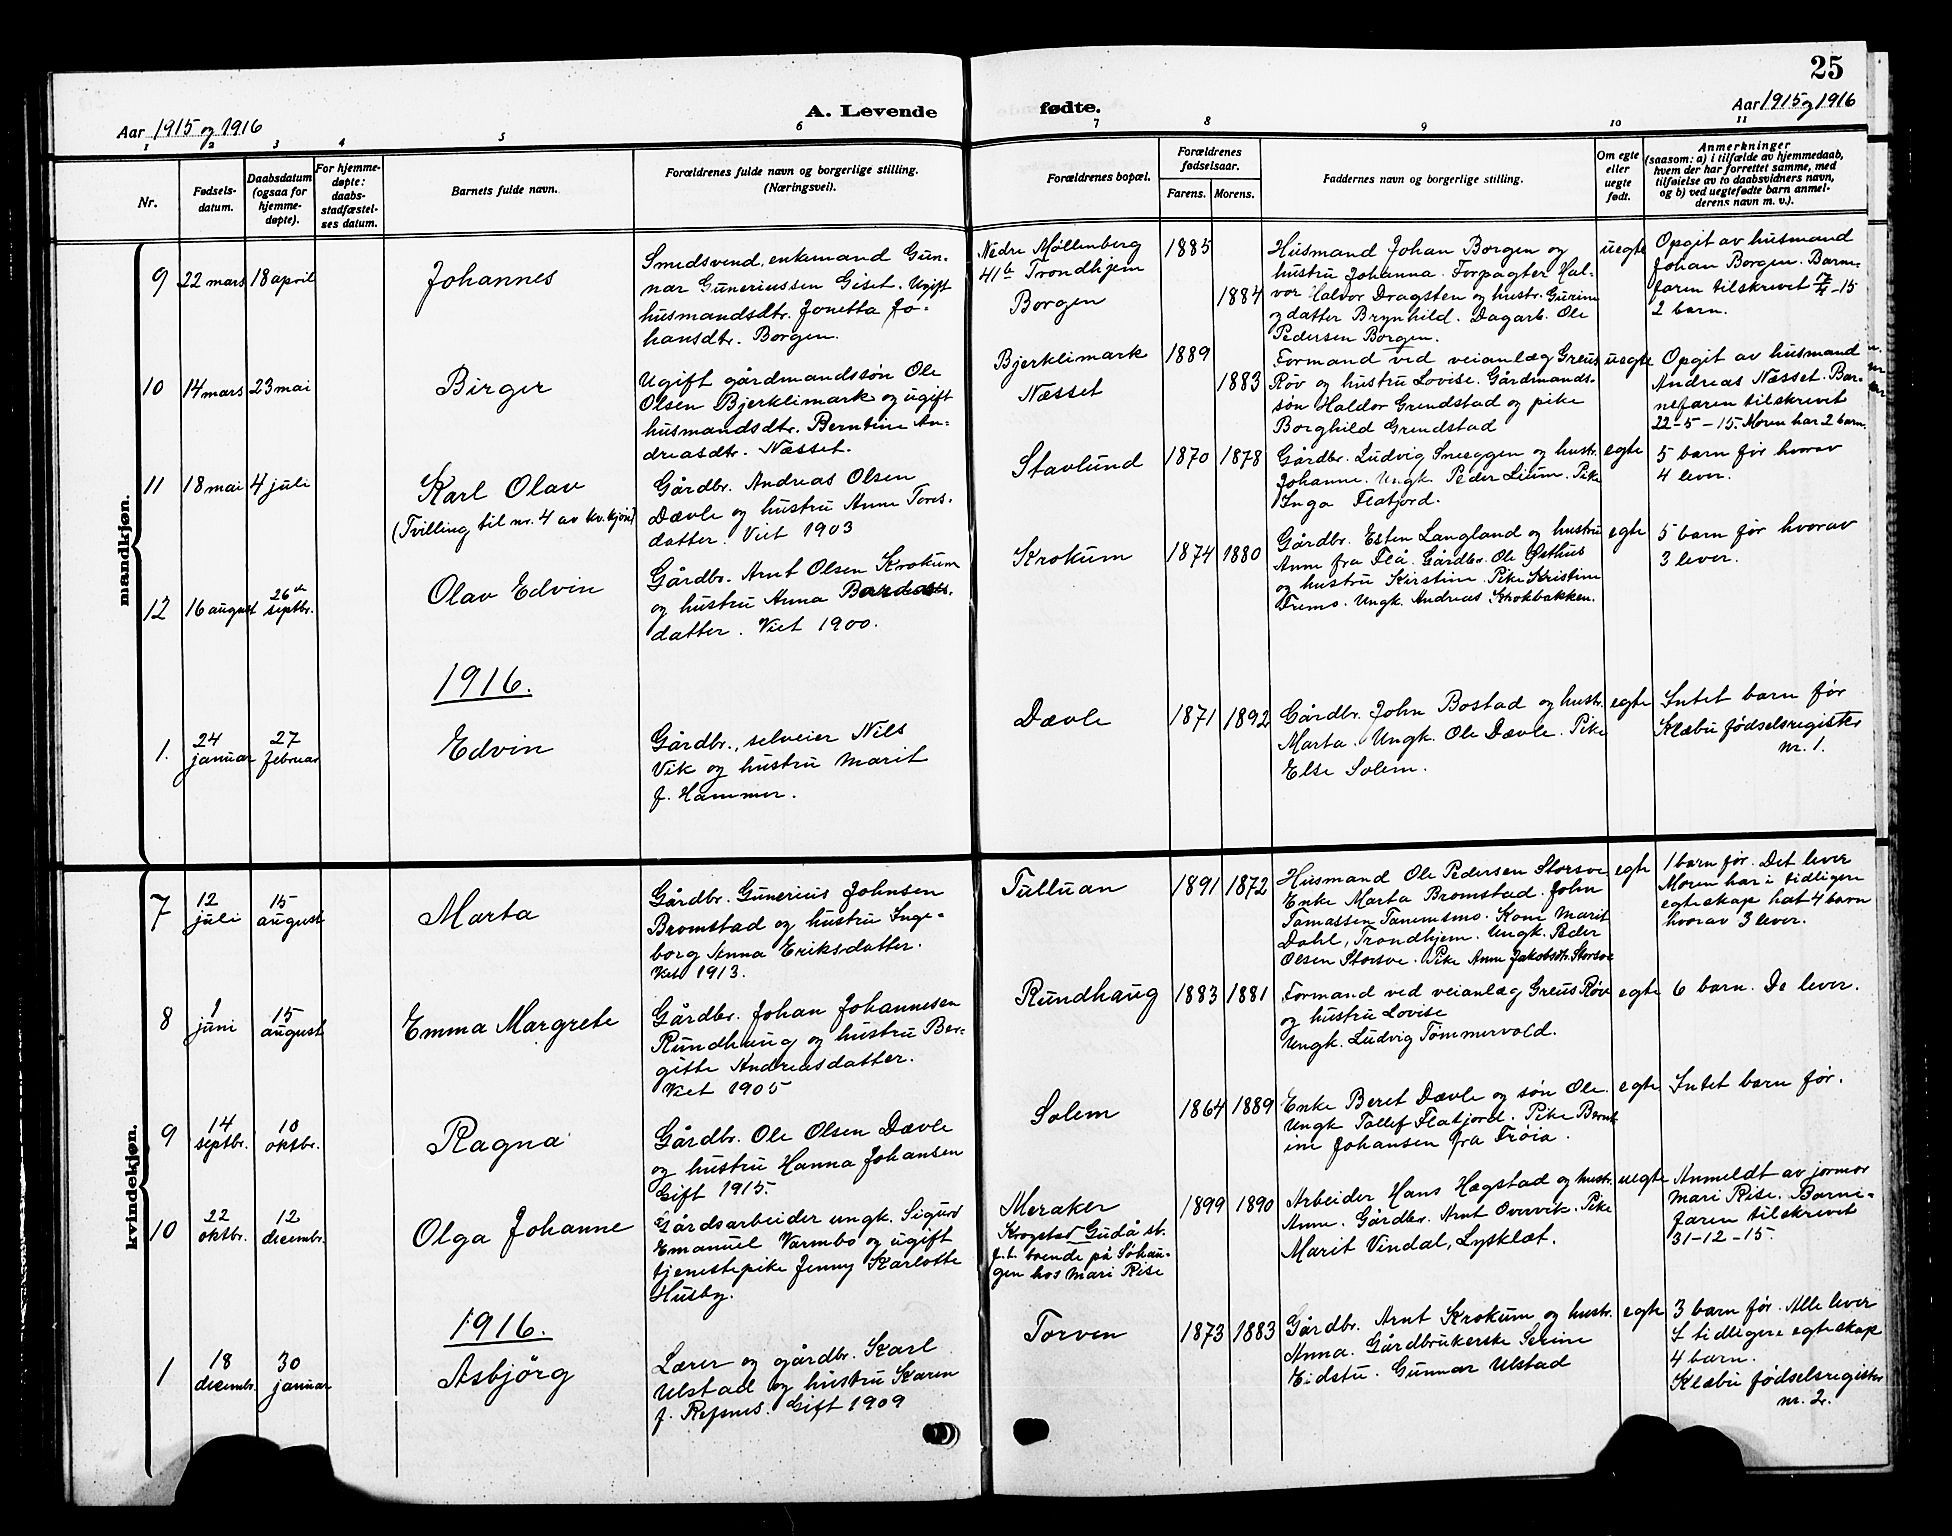 25
A. Levende fødte.
Aar 1915 og 1916
Aar 1915 og 1916
1 2 3 4 5 6 7 8 9 10 11
Nr.
Fødsels-
datum.
Daabsdatum
(ogsaa for
hjemme-
døpte).
For hjemme-
døpte:
daabs-
stadfæstel-
ses datum.
Barnets fulde navn.
Forældrenes fulde navn og borgerlige stilling.
(Næringsvei).
Forældrenes bopæl.
Forældrenes
fødselsaar.
Farens. Morens.
Faddernes navn og borgerlige stilling.
Om egte
eller
uegte
født.
Anmerkninger
(saasom: a) i tilfælde av hjemmedaab,
hvem der har forrettet samme, med
tilføielse av to daabsvidners navn,
og b) ved uegtefødte barn anmel-
derens navn m. v.).
mandkjøn.
9 22 mars 18 april
Johannes
Smedsvend, enkemand Gun-
nar Guneriussen Giset. Ugift
husmandsdtr. Jonetta Jo-
hansdtr. Borgen.
Nedre Møllenberg
41b Trondhjem
Borgen
1885
1884
Husmand Johan Borgen og
hustru Johanna. Forpagter Hal-
vor Haldor Dragsten og hustr. Gurine
og datter Brynhild. Dagarb. Ole
Pedersen Borgen.
uegte
Opgit av husmand
Johan Borgen. Barne-
faren tilskrevet 7/4-15
2 barn.
10 14 mars 23 mai
Birger
Ugift gårdmandssøn Ole
Olsen Bjerklimark og ugift
husmandsdtr. Berntine An-
dreasdtr. Næsset.
Bjerklimark
Næsset
1889
1883
Formand ved veianlæg Greus
Røv og hustru Lovise. Gårdmands-
søn Haldor Grendstad og pike
Borghild Grendstad
uegte
Opgit av husmand
Andreas Næsset. Bar-
nefaren tilskrevet
22-5-15. Moren har 2 barn.
11 18 mai 4 juli
Karl Olav
(Tvilling til nr. 4 av kv.kjøn)
Gårdbr. Andreas Olsen
Dævle og hustru Anne Tores-
datter. Viet 1903
Stavlund
1870 1878
Gårdbr. Ludvig Sneeggen og hustr.
Johanne. Ungk. Peder Lium. Pike
Inga Flatjord.
egte
5 barn før hvorav
4 lever.
12 16 august 26de septbr.
Olav Edvin
Gårdbr. Arnt Olsen Krokum
og hustru Anna Bardos-
datter. Viet 1900.
Krokum
1874 1880
Gårdbr. Esten Langland og hustru
Anne fra Flå. Gårdbr. Ole Østhus
og hustru Kirstine. Pike Kristine
Fremo. Ungk. Andreas Krokbakken.
egte
5 barn før hvorav
3 lever.
1916.
1. 24 januar 27 februar
Edvin
Gårdbr., selveier Nils
Vik og hustru Marit
f. Hammer.
Dævle
1871 1892
Gårdbr. John Bostad og hustr.
Marta. Ungk. Ole Dævle. Pike
Else Solem.
egte
Intet barn før
Klæbu fødselsregister
nr. 1.
kvindekjøn.
7 12 juli 15 august
Marta
Gårdbr. Gunerius Johnsen
Bromstad og hustru Inge-
borg Anna Eriksdatter.
Viet 1913.
Tulluan
1891 1872
Husmand Ole Pedersen Storsve
Enke Marta Bromstad. John
Tomassen Tanemsmo. Kone Marit
Dahl, Trondhjem. Ungk. Peder
Olsen Storsve. Pike Anne Jakobsdtr. Storsve
egte
1 barn før. Det lever
Moren har i tidligere
egteskap hat 4 barn
hvorav 3 lever.
8 1 juni 15 august
Emma Margrete
Gårdbr. Johan Johannesen
Rundhaug og hustru Ber-
gitte Andreasdatter.
Viet 1905
Rundhaug
1883 1881
Formand ved veianlæg Greus Røv
og hustru Lovise
Ungk. Ludvig Tømmervold.
egte
6 barn. De lever.
9 14 septbr. 10 oktbr.
Ragna
Gårdbr. Ole Olsen Dævle
og hustru Hanna Johansen
Gift 1915.
Solem
1864 1889
Enke Beret Dævle og søn Ole.
Ungk Tollef Flatjord. Pike Bernt-
ine Johansen fra Frøia.
egte
Intet barn før.
10 22 oktbr. 12 decembr.
Olga Johanne
Gårdsarbeider ungk. Sigurd
Emanuel Varmbo og ugift
tjenestepike Jenny Karlotte
Husby.
Meraker
Krogstad Gudå st.
f.t. boende på Sohau-
gen hos Mari Rise
1899 1890
Arbeider Hans Hagstad og hustr.
Anne. Gårdbr. Arnt Overvik. Pike
Marit Vindal, Lysklæt.
uegte
Anmeldt av jormor
Mari Rise. Barne-
faren tilskrevet
31-12-15.
1916.
1 18 decembr. 30 januar
Asbjörg
Lærer og gårdbr. Karl
Ulstad og hustru Karen
f. Refsnes. Gift 1909
Torven
1873 1883
Gårdbr. Arnt Krokum og hustr.
Anna. Gårdbrukerske Serine
Eidstu. Gunnar Ulstad
egte
3 barn før. Alle lever
I tidligere egteskap
4 barn.
Klæbu fødselsregister
nr. 2.